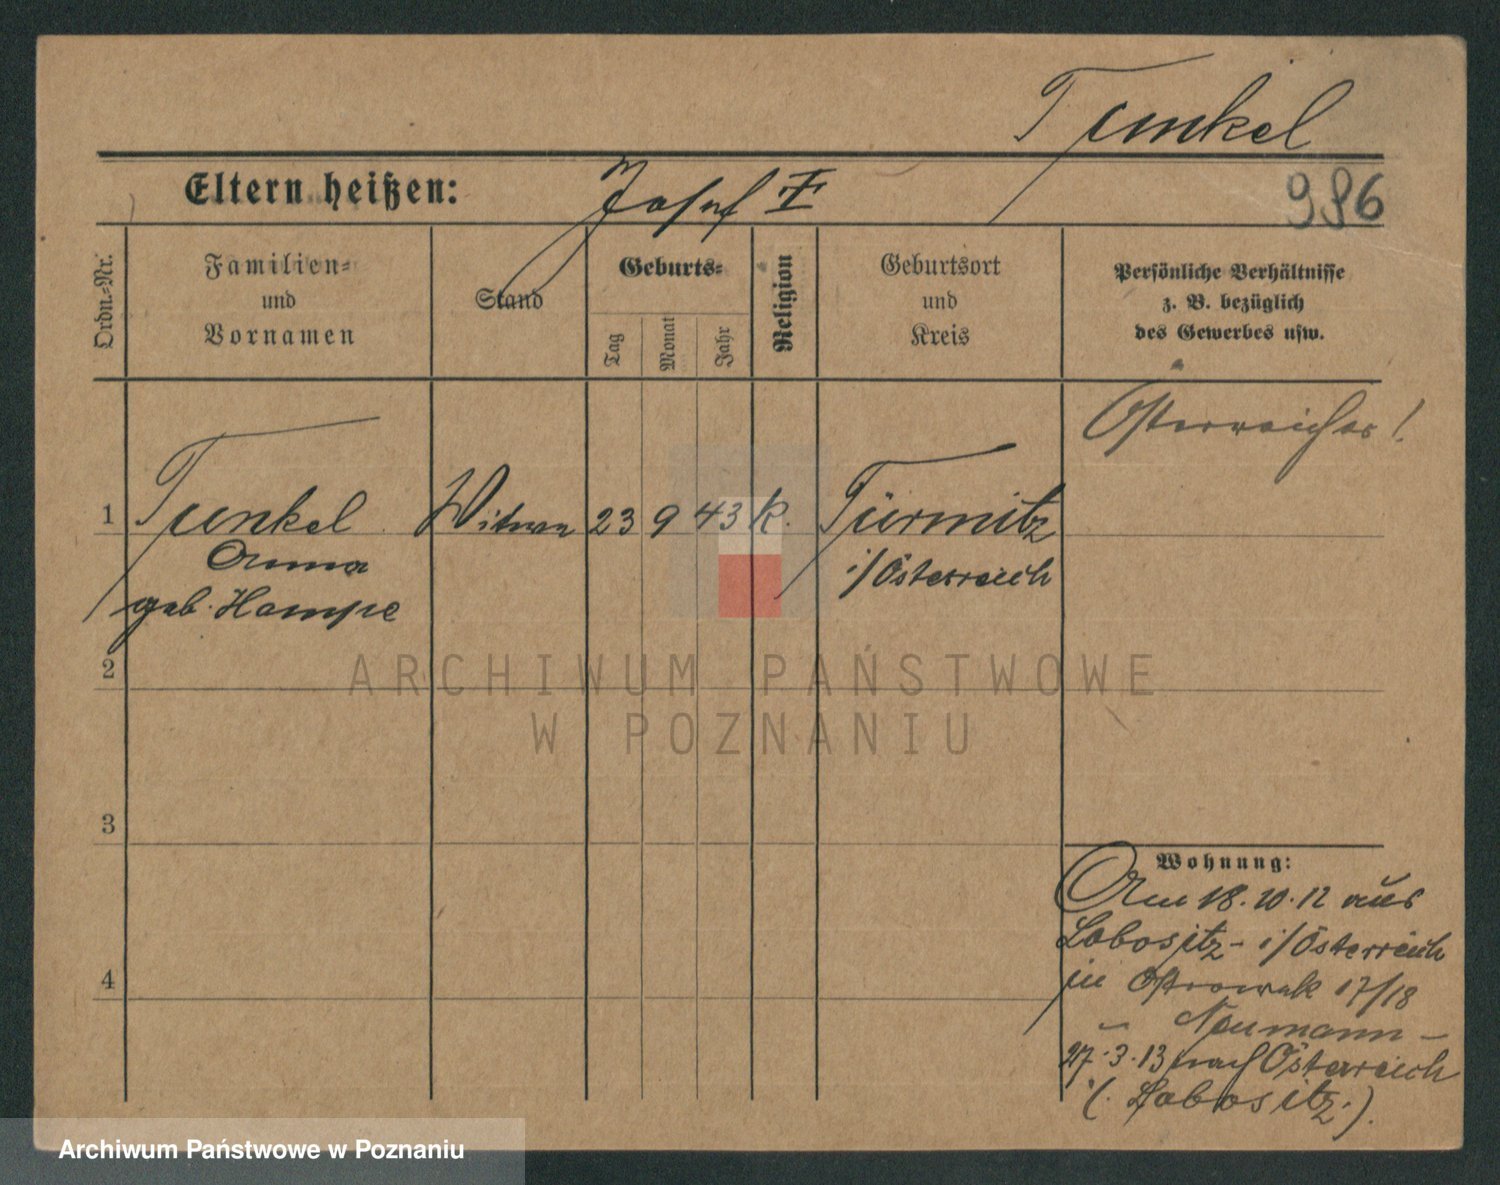 Tunkel
Eltern heißen: Josef I 986
Ordn.-Nr.
Familien-
und
Vornamen
Stand
Geburts-
Tag
Monat
Jahr
Religion
Geburtsort
und
Kreis
Persönliche Verhältnisse
z. B. bezüglich
des Gewerbes usw.
Österreicher!
1 Tunkel Witwe 23 9 43 k. Türmitz
Anna i/Österreich
geb. Hampe
2
ARCHIWUM PAŃSTWOWE
W POZNANIU
3
Wohnung:
Am 18.10.12 aus
Lobositz - i/Österreich
in 17/18
- Neumann -
27.3.13 nach Österreich
(Lobositz.).
4
Archiwum Państwowe w Poznaniu